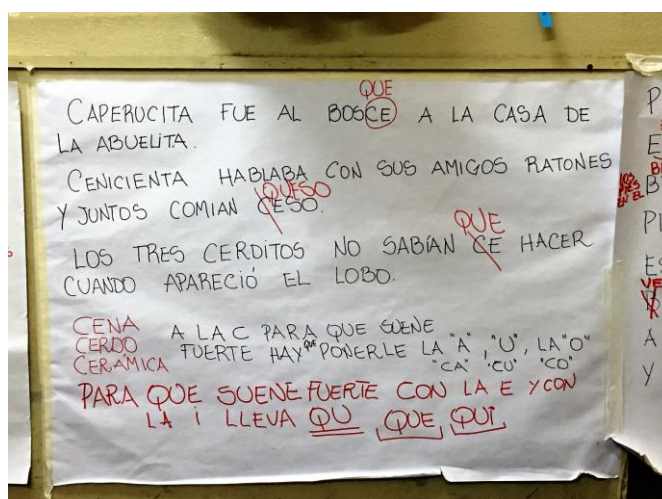 QUE
CAPERUCITA FUE AL BOSCE A LA CASA DE
LA ABUELITA.
CENICIENTA HABLABA CON SUS AMIGOS RATONES
QUESO
Y JUNTOS COMIAN CESO.
QUE
LOS TRES CERDITOS NO SABÍAN CE HACER
CUANDO APARECIÓ EL LOBO.
CENA
CERDO
CERÁMICA
A LA C PARA QUE SUENE
FUERTE HAY QUE PONERLE LA "A", "U", LA "O"
"CA" "CU" "CO"
PARA QUE SUENE FUERTE CON LA E Y CON
LA i LLEVA QU QUE QUi
P
E
B
PL
ES
VE
A
Y